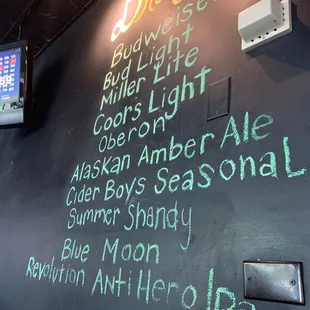 Budweiser
Bud Light
Miller Lite
Coors Light
Oberon
Alaskan Amber Ale
Cider Boys Seasonal
Summer Shandy
Blue Moon
Revolution AntiHero Ipa